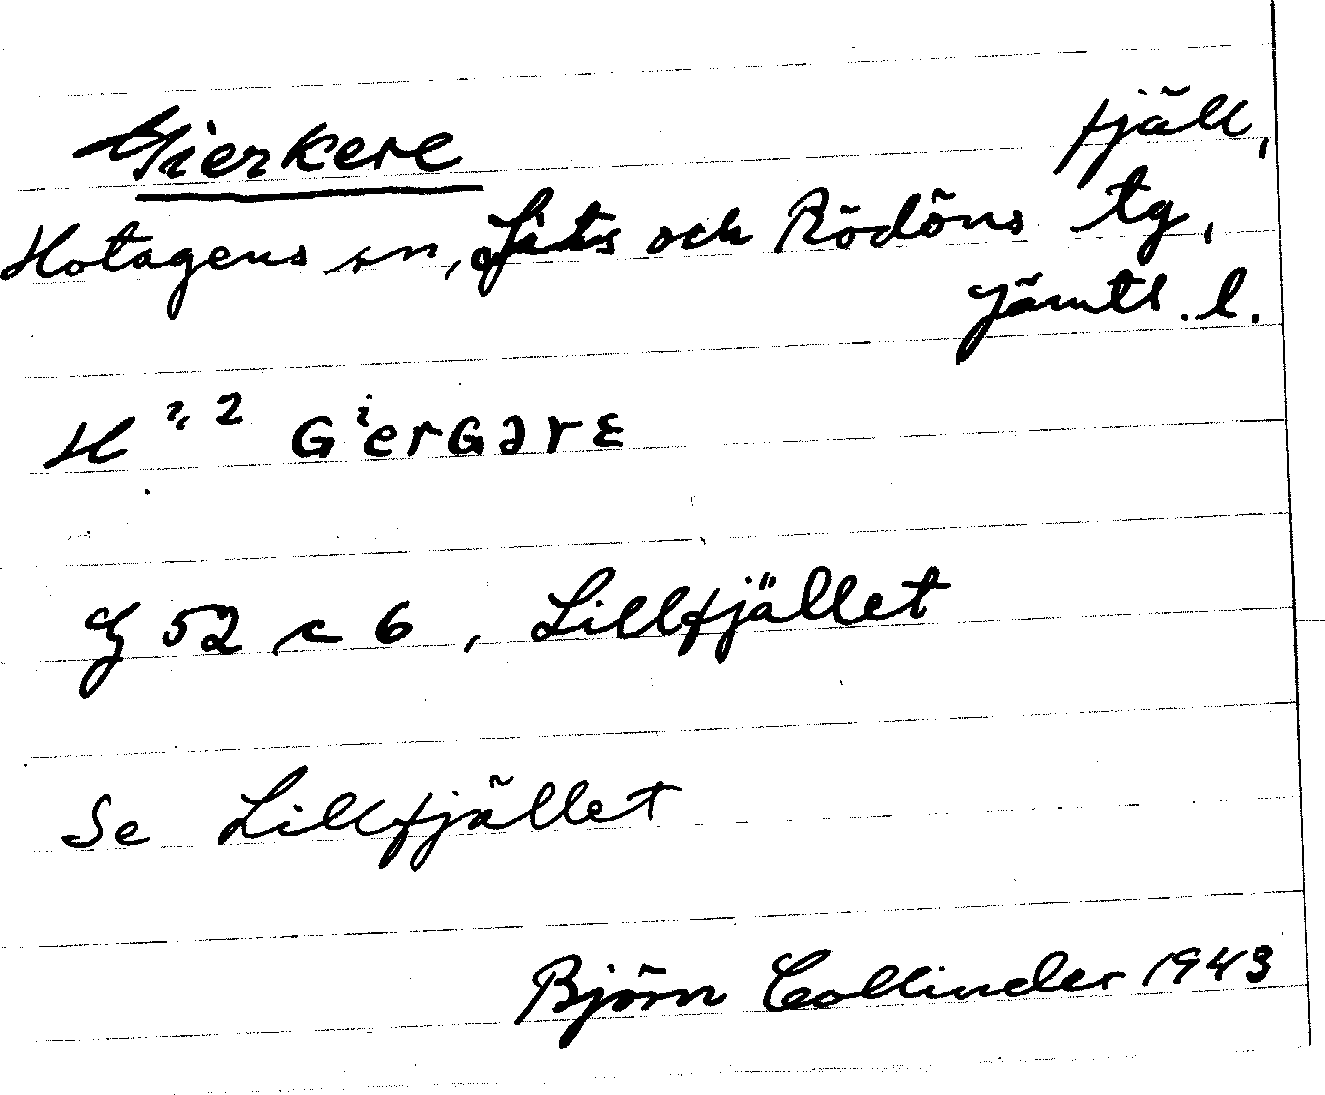 Gierkere fjäll,
Hotagens sn, Lits och Rödöns tg,
Jämtl. l.
H 2 GierGərɛ
G 52 c 6, Lillfjället
Se Lillfjället
Björn Collinder 1943